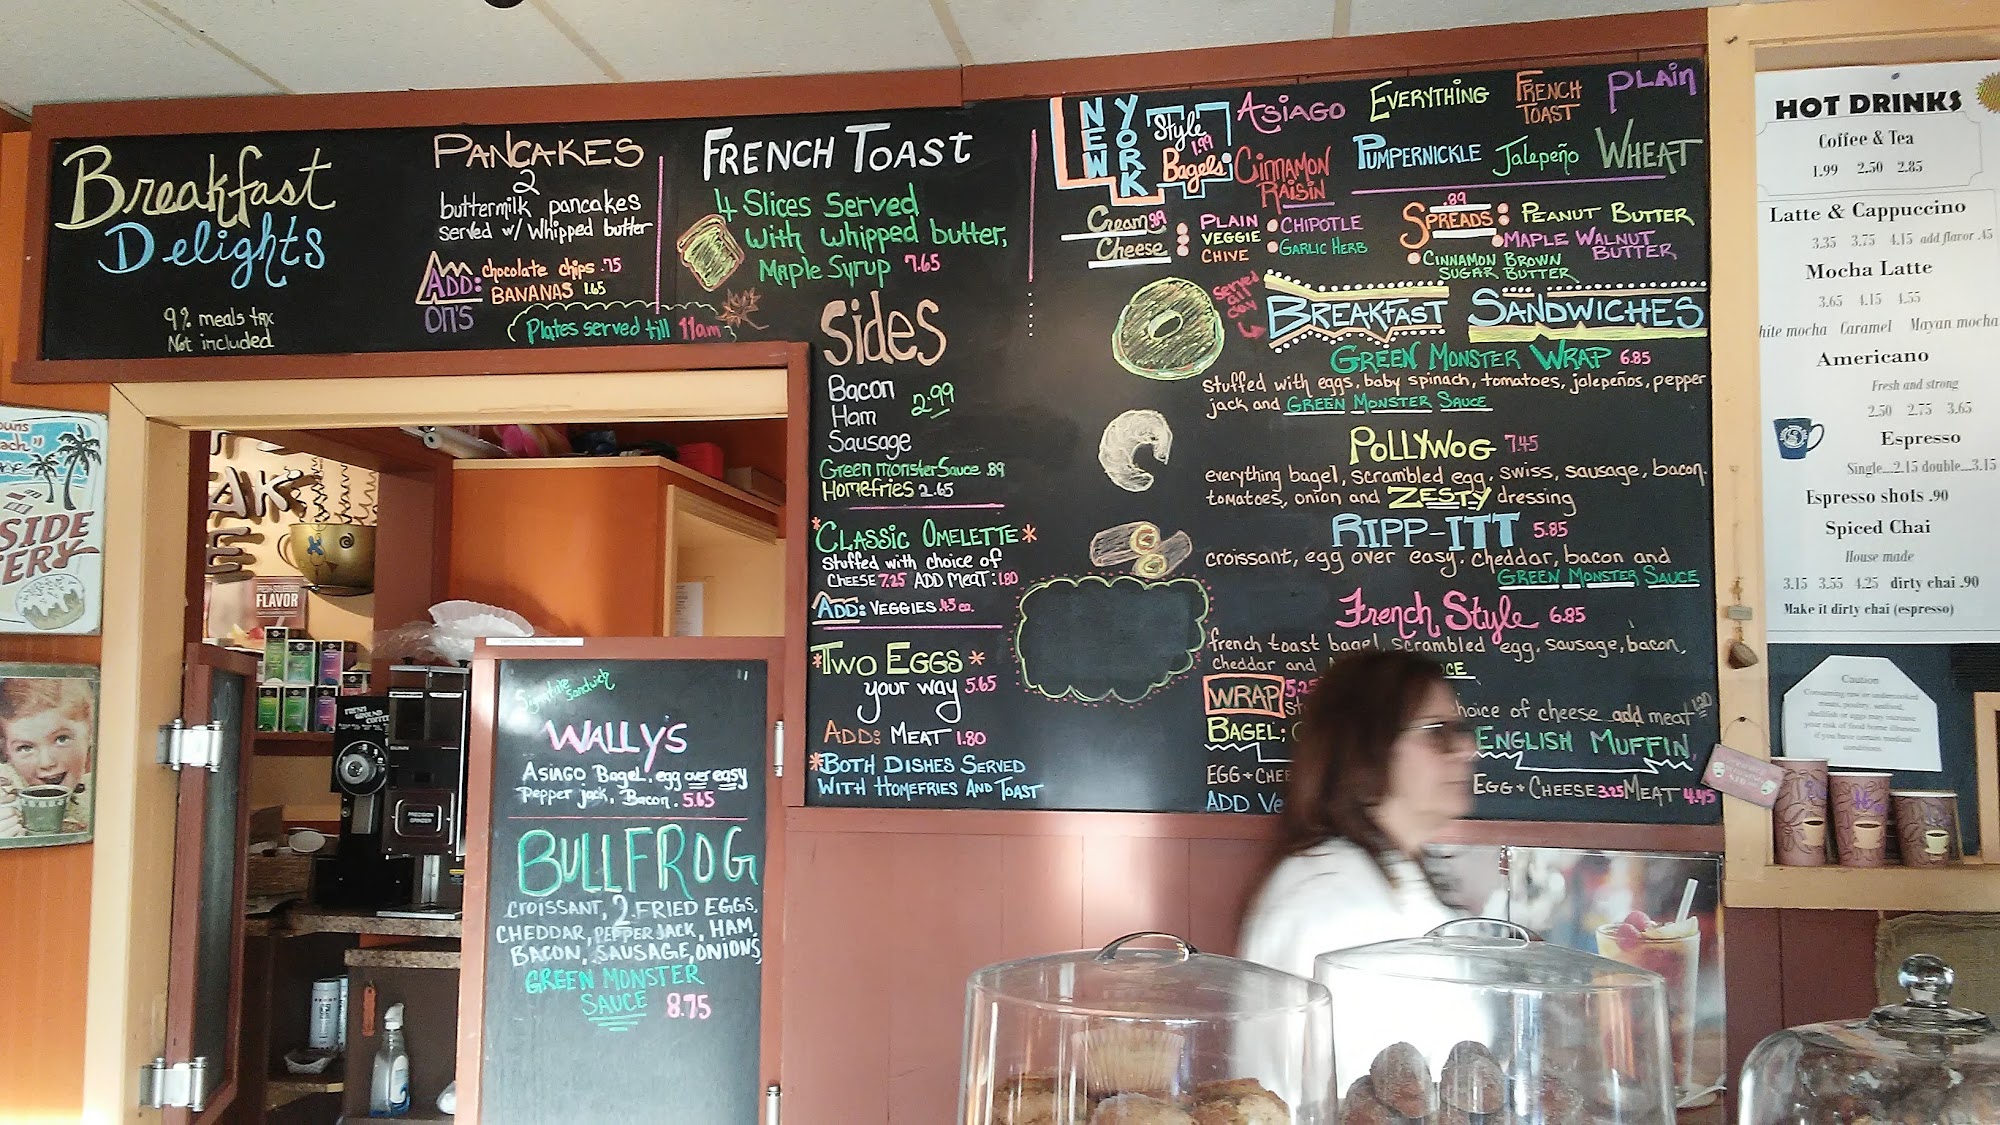 Breakfast
Delights
9% meals tax
Not included
PANCAKES
2
buttermilk pancakes
served w/ whipped butter
ADD:
ON'S
chocolate chips .75
BANANAS 1.65
Plates served till 11am
FRENCH TOAST
4 Slices Served
with whipped butter,
Maple Syrup 7.65
Sides
Bacon
Ham 2.99
Sausage
Green monster Sauce .89
Homefries 2.65
*CLASSIC OMELETTE*
stuffed with choice of
CHEESE 7.25 ADD MEAT: 1.80
ADD: VEGGIES .45 ea.
*TWO EGGS*
your way 5.65
ADD: MEAT 1.80
*BOTH DISHES SERVED
WITH HOMEFRIES AND TOAST
NEW
YORK
Style
1.99
Bagels
ASIAGO
EVERYTHING
FRENCH
TOAST
PLAIN
CINNAMON
RAISIN
PUMPERNICKLE
Jalepeño
WHEAT
Cream .99
Cheese
PLAIN
VEGGIE
CHIVE
CHIPOTLE
GARLIC HERB
.89
SPREADS
PEANUT BUTTER
MAPLE WALNUT
BUTTER
CINNAMON BROWN
SUGAR BUTTER
served
all
day
BREAKFAST SANDWICHES
GREEN MONSTER WRAP 6.85
stuffed with eggs, baby spinach, tomatoes, jalepeños, pepper
jack and GREEN MONSTER SAUCE
POLLYWOG 7.45
everything bagel, scrambled egg, swiss, sausage, bacon.
tomatoes, onion and ZESTY dressing
RIPP-ITT 5.85
croissant, egg over easy. cheddar, bacon and
GREEN MONSTER SAUCE
French Style 6.85
french toast bagel, scrambled egg, sausage, bacon,
cheddar and
WRAP 5.25
choice of cheese add meat 1.20
BAGEL;
EGG + CHEE
ADD Ve
ENGLISH MUFFIN
EGG + CHEESE 3.25 MEAT 4.45
Signature
Sandwich
WALLY'S
ASIAGO Bagel, egg over easy
pepper jack, Bacon. 5.65
BULLFROG
CROISSANT, 2 FRIED EGGS,
CHEDDAR, PEPPER JACK, HAM,
BACON, SAUSAGE, ONIONS,
GREEN MONSTER
SAUCE 8.75
HOT DRINKS
Coffee & Tea
1.99 2.50 2.85
Latte & Cappuccino
3.35 3.75 4.15 add flavor .45
Mocha Latte
3.65 4.15 4.55
hite mocha Caramel Mayan mocha
Americano
Fresh and strong
2.50 2.75 3.65
Espresso
Single...2.15 double...3.15
Espresso shots .90
Spiced Chai
House made
3.15 3.55 4.25 dirty chai .90
Make it dirty chai (espresso)
Caution
Consuming raw or undercooked
meats, poultry, seafood,
shellfish or eggs may increase
your risk of food borne illnesses
if you have certain medical
conditions.
SIDE
ERY
FLAVOR
FRESH
GROUND
COFFEE